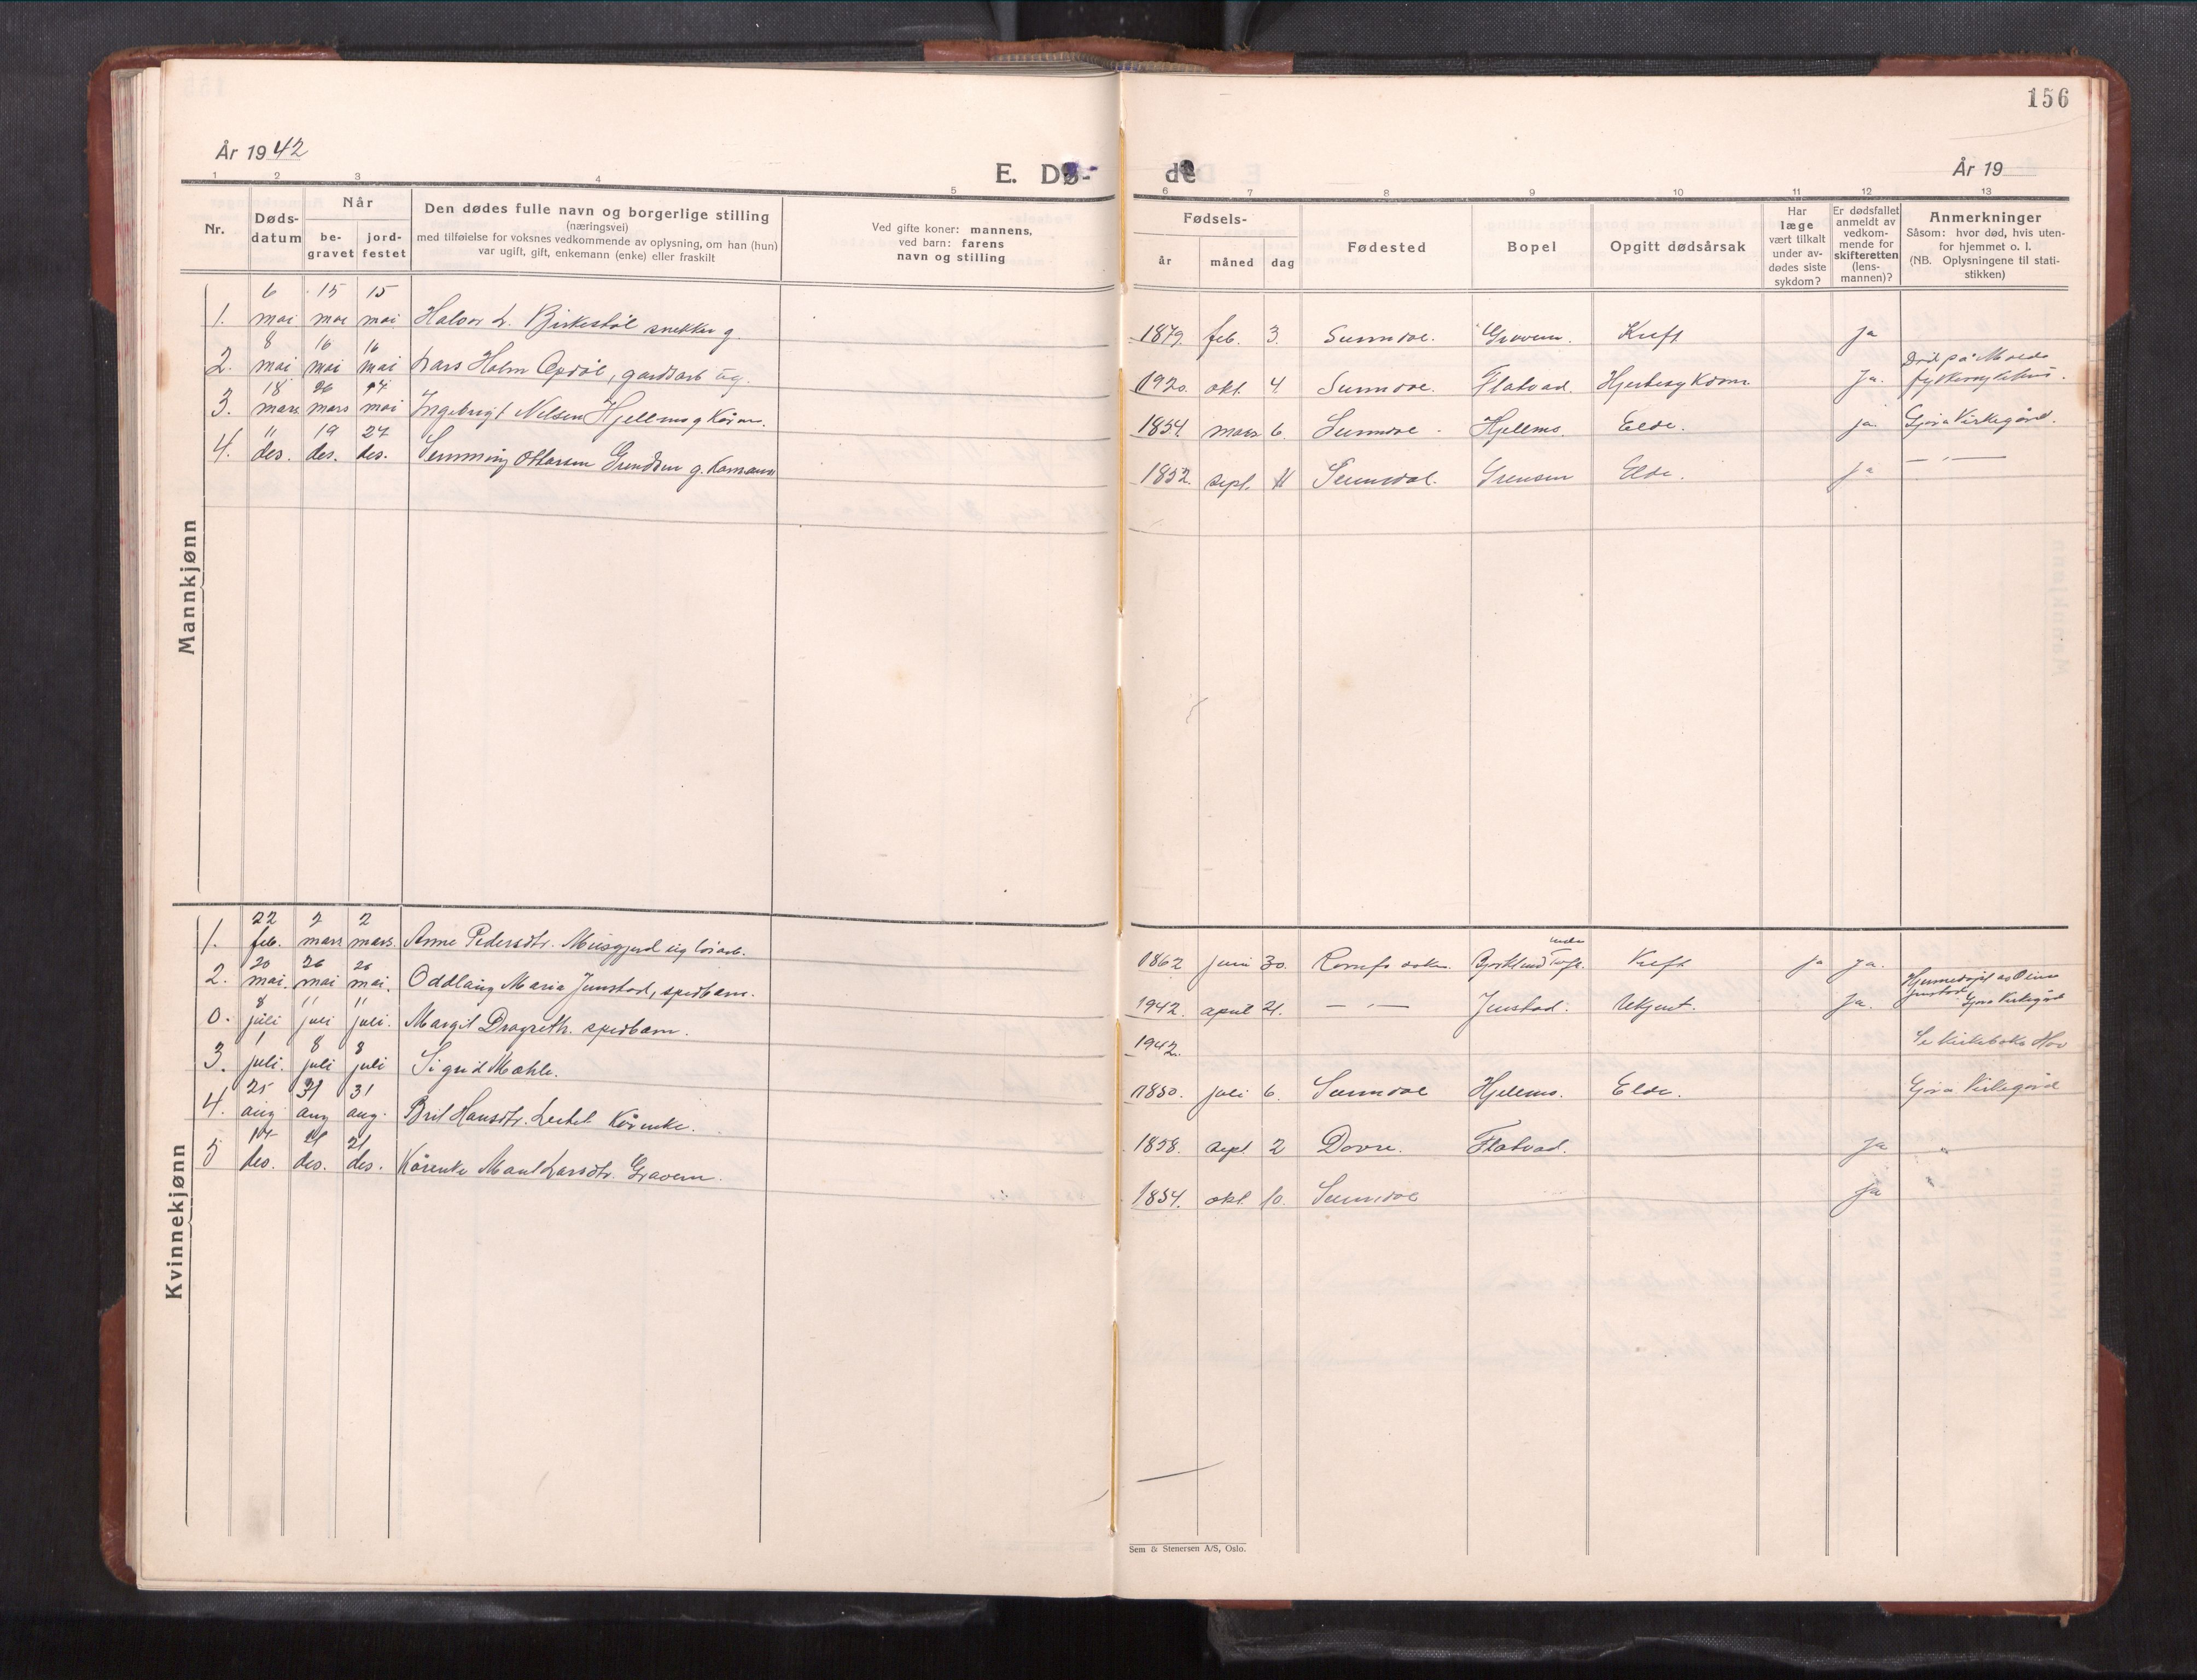 156
År 1942
E. Dø-
de
År 19
1 2 3 4 5 6 7 8 9 10 11 12 13
Nr.
Døds-
datum
Når
be-
gravet
jord-
festet
Den dødes fulle navn og borgerlige stilling
(næringsvei)
med tilføielse for voksnes vedkommende av oplysning, om han (hun)
var ugift, gift, enkemann (enke) eller fraskilt
Ved gifte koner: mannens,
ved barn: farens
navn og stilling
Fødsels-
år
måned
dag
Fødested
Bopel
Opgitt dødsårsak
Har
læge
vært tilkalt
under av-
dødes siste
sykdom?
Er dødsfallet
anmeldt av
vedkom-
mende for
skifteretten
(lens-
mannen)?
Anmerkninger
Såsom: hvor død, hvis uten-
for hjemmet o. l.
(NB. Oplysningene til stati-
stikken)
Mannkjønn
1. 6 mai 15 mai 15 mai Halvor L. Birkestøl snekker g. 1879. feb. 3. Sunndal. Gravem. Kreft ja
2. 8 mai 16 mai 16 mai Lars Holm Opdøl, gardsarb ug. 1920. okt. 4. Sunndal. Flatvad. Ja. Død på Molde fylkessykehus.
3. 18 mars 26 mars 14 mai Ingebrigt Nilsen Hjellmo g Kårm. 1854. mars 6. Sunndal. Hjellmo. Elde. ja. Gjøra Kirkegård.
4. 11 des. 19 des. 27 des. Semming Ottarsen g. Kårmann 1852. sept. 11 Sunndal. Elde. ja — " —
Kvinnekjønn
1. 22 feb. 2 mars 2 mars. Anne Pedersdtr. Musgjerd ug 1862 juni 30. Kreft ja ja.
2. 20 mai 26 mai 26 mai. Oddlaug Maria Jenstad, spedbarn. 1942. april 21. — " — Jenstad. Ukjent. Ja. Hjemmedøpt av Oline Jenstad Gjøra Kirkegård
0. 8 juli 11 juli 11 juli. Margit Dragseth. spedbarn. 1942. Se kirkeboka Hov
3. 1 juli. 8 juli 8 juli Sigrid Mæhle. 1850. juli 6. Sunndal Hjellmo. Elde. Gjøra Kirkegård
4. 25 aug 31 aug 31 aug. Brit Hansdtr. Kårenke. 1858. sept 2 Dovre. Flatvad. ja "
5 14 des. 21 des. 21 des. Kårenke Marit Larsdtr. Gravem. 1854. okt. 10. Sunndal ja
Sem & Stenersen A/S, Oslo.